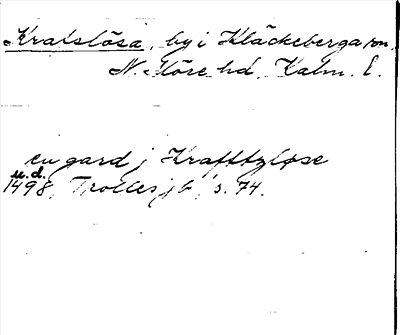 Kratslösa, by i Kläckeberga sn,
N. Möre hd, Kalm. l.
en gard j Krafftzløse
u.d.
1498, Trolles jb, s. 74.